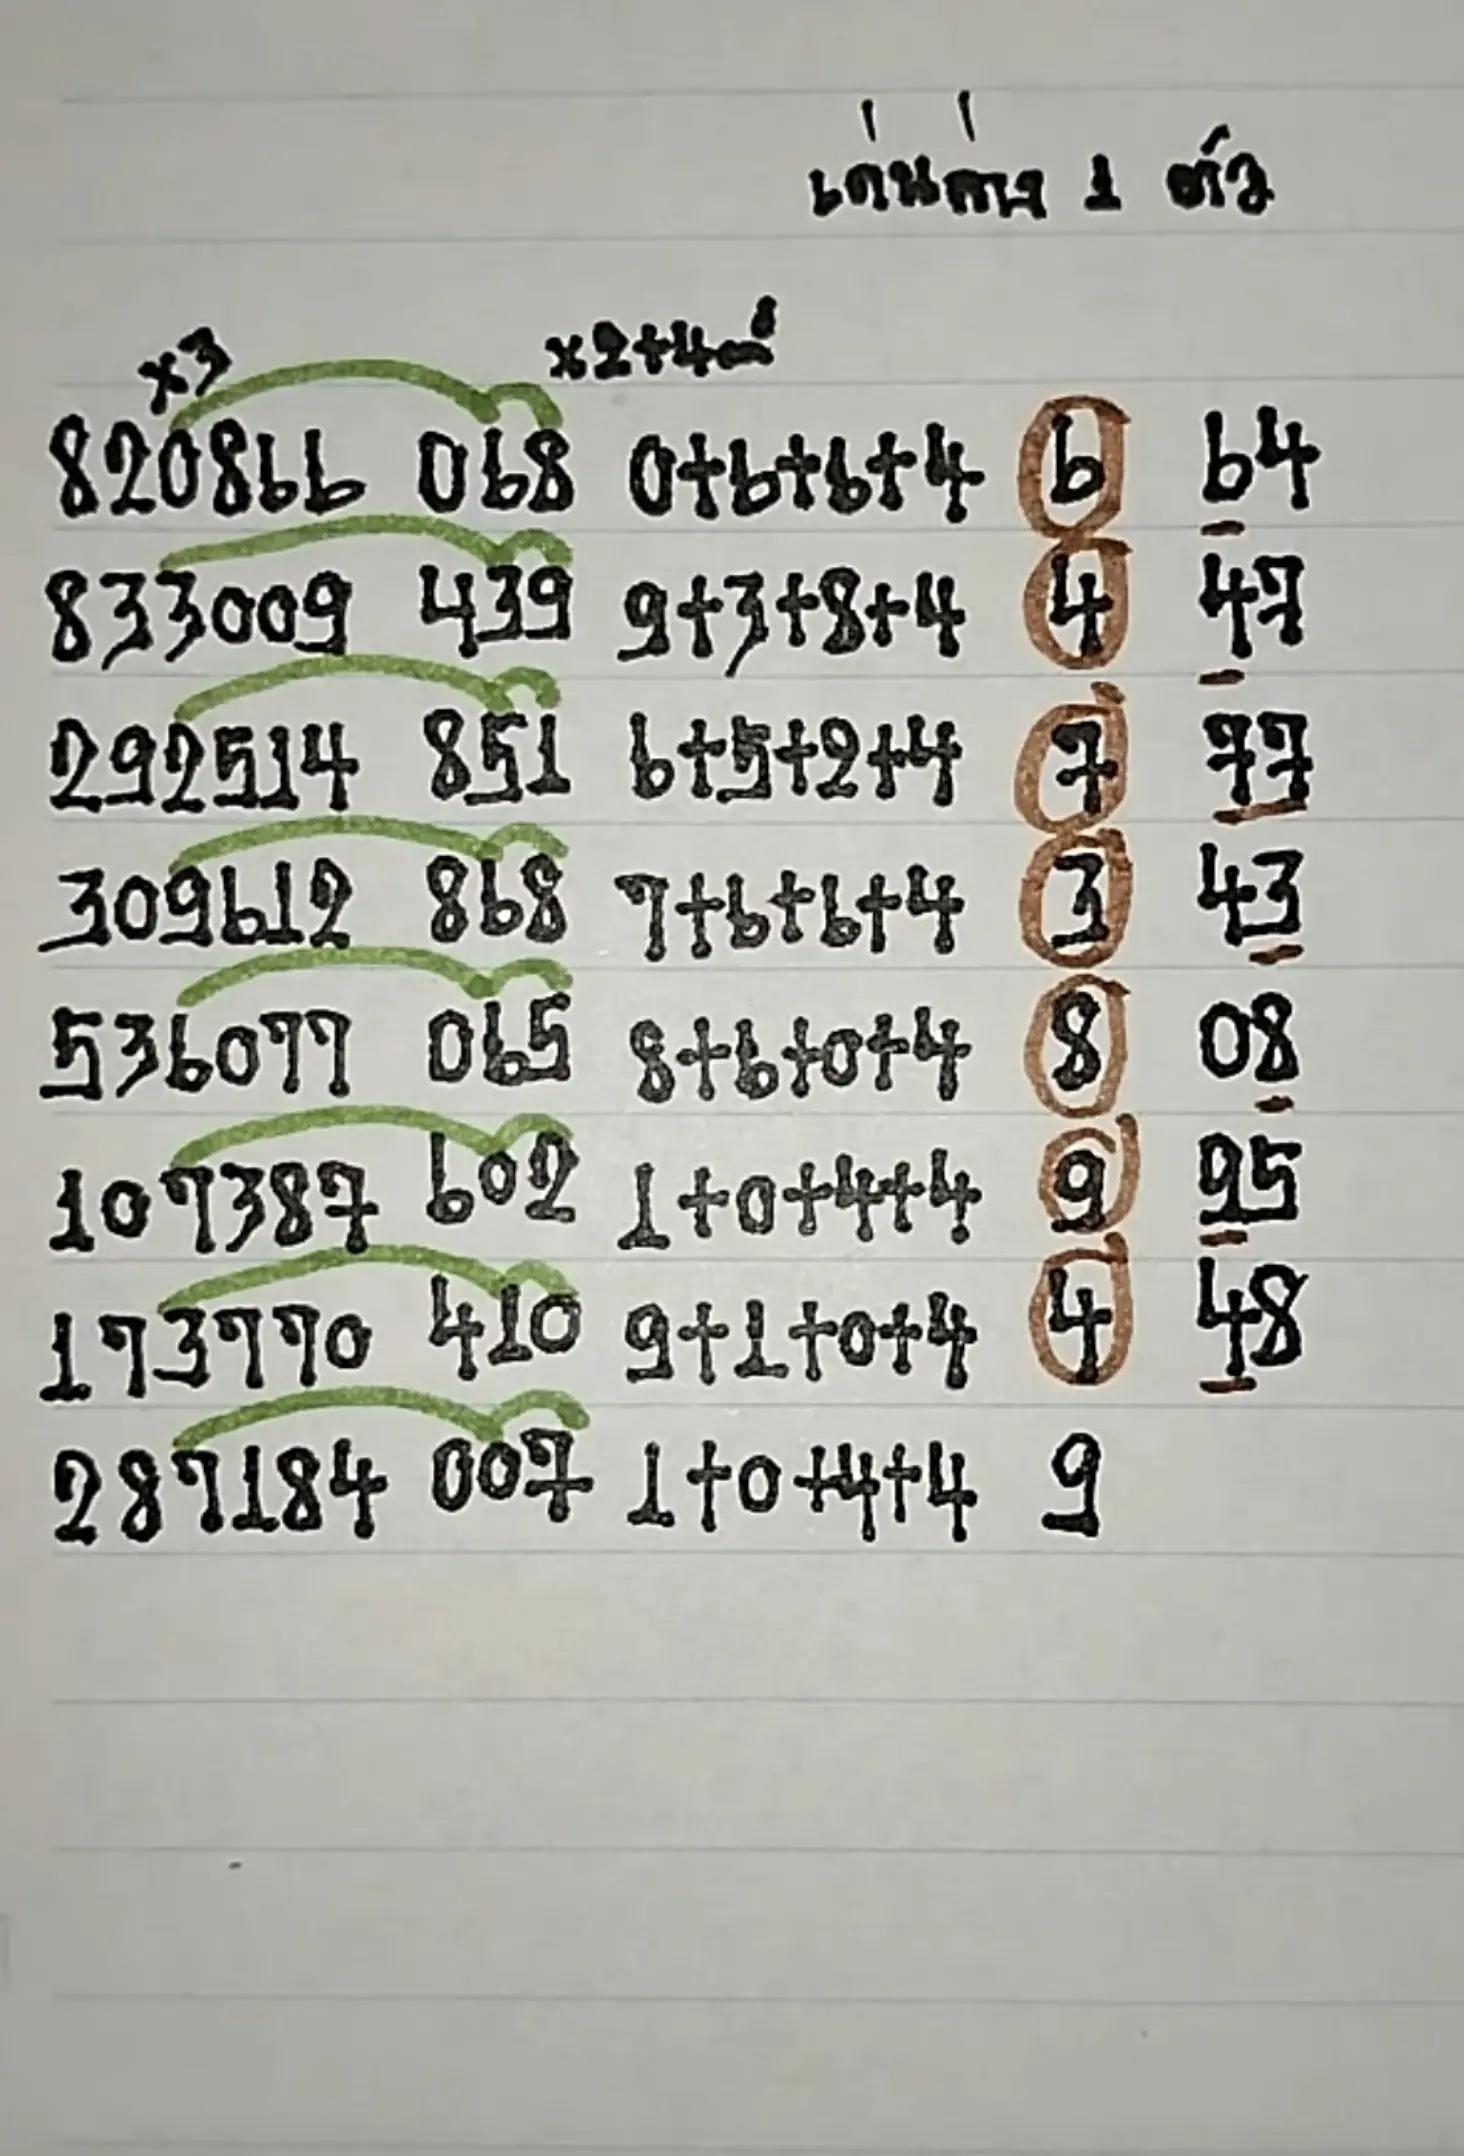 เด่นล่าง 1 ตัว
x3 x2+4
820866 068 0+6+6+4 6 64
833009 439 9+3+8+4 4 47
292514 851 6+5+2+4 7 77
309612 868 7+6+6+4 3 43
536077 065 8+6+0+4 8 08
107387 602 1+0+4+4 9 95
173770 410 9+1+0+4 4 48
287184 007 1+0+4+4 9